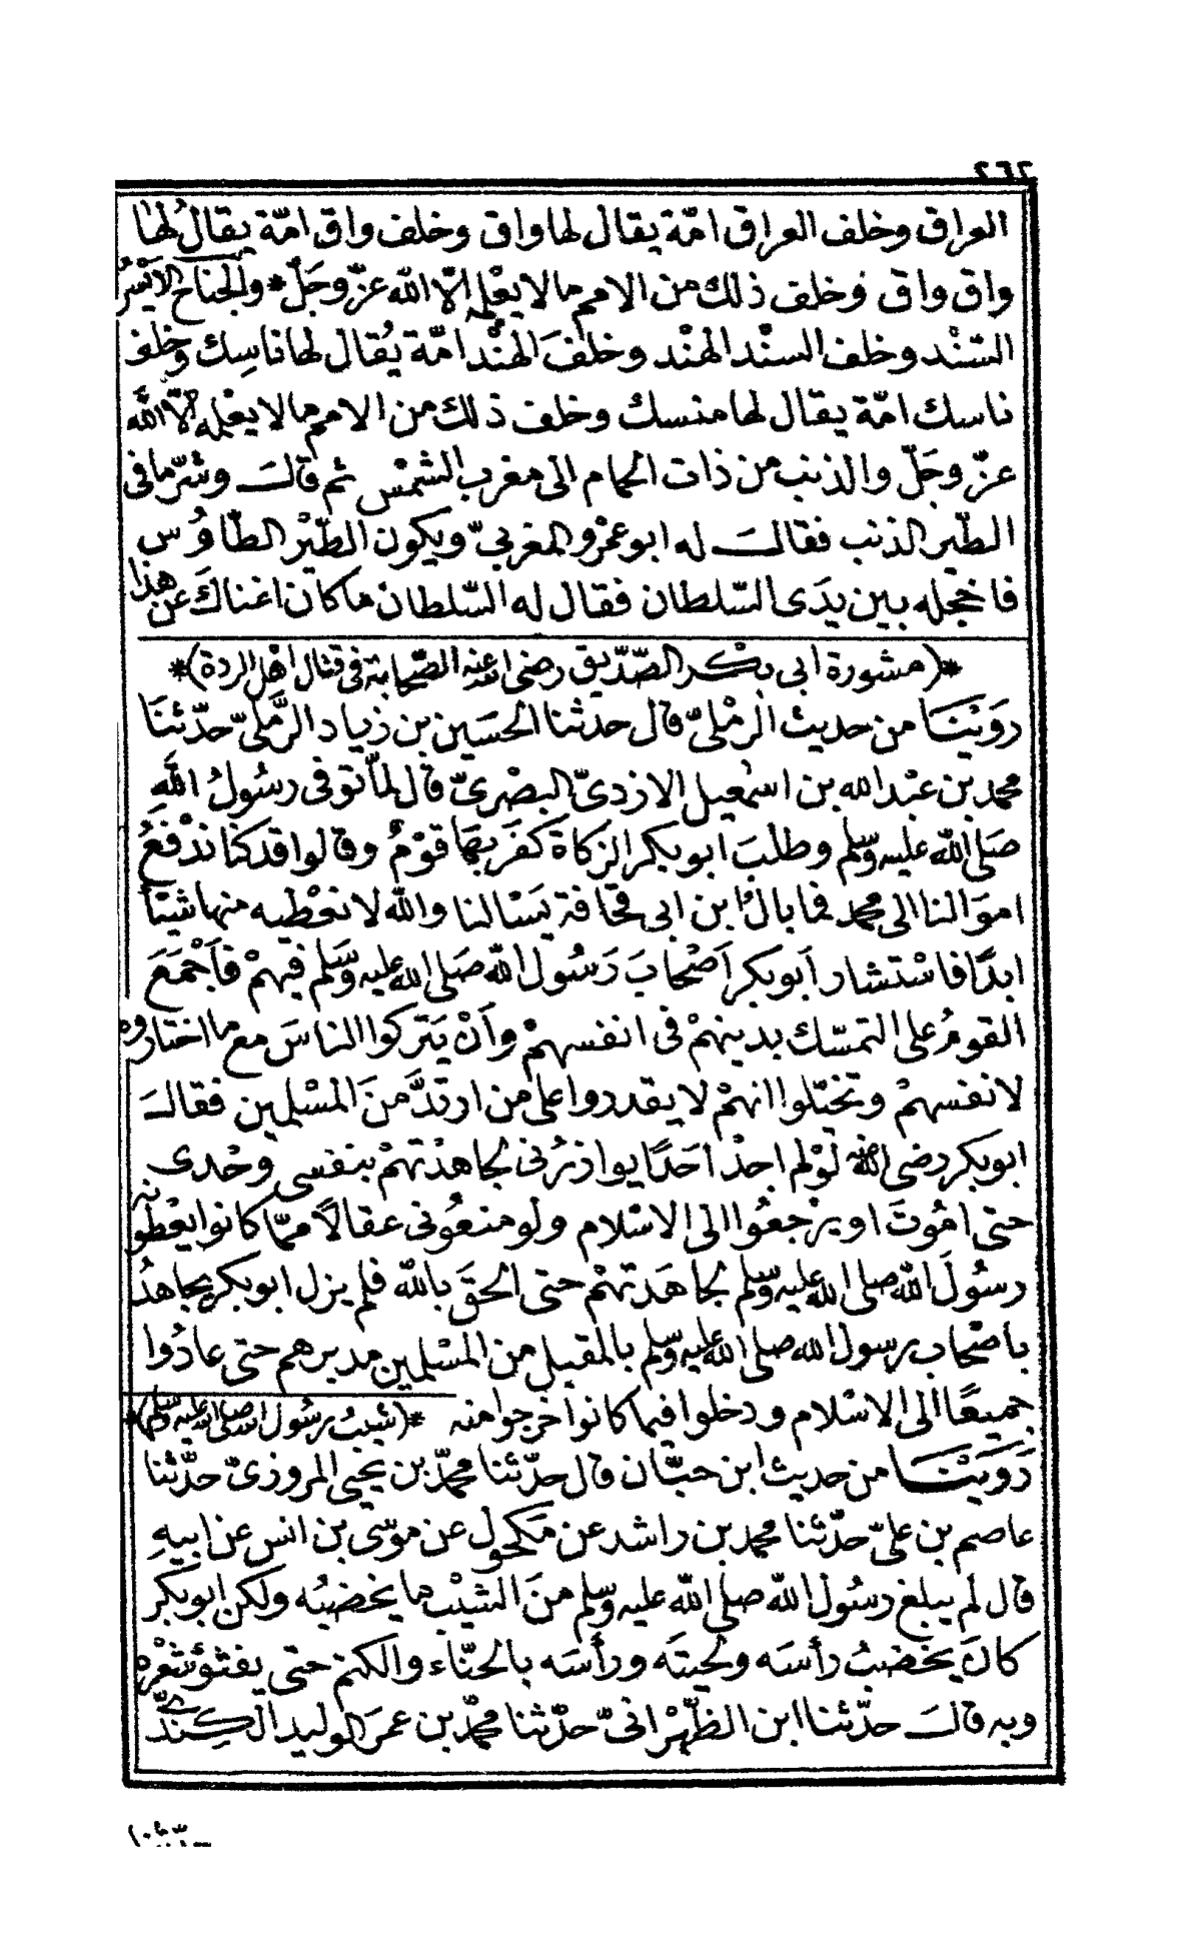 ٢٦٢
العراق وخلف العراق امّة يقال لها واق وخلف واق امّة يقالُ لها
واق واق وخلف ذلك من الامم ما لا يعْلمه الّا الله عزّ وجَلّ * والجناح الايْسرُ
السّنْد وخلف السنْد الهنْد وخلفَ الهنْد امّة يُقال لها ناسِك وخلف
ناسك امّة يقال لها منسك وخلف ذلك من الامم ما لا يعْلمه الّا الله
عزّ وجَلّ والذنب من ذات الحمام الى مغرب الشمْس ثم قالَ وشرّ ما فى
الطّير الذنب فقالَ له ابو عمْرو المغربىّ ويكون الطّيْر الطّاوُس
فاخجله بين يدَى السّلطان فقال له السّلطان ما كان اغناكَ عن هذا
*(مشورة ابى بكر الصّدّيق رضى الله عنه الصّحابة فى قتال اهْل الردة)*
روَيْنَا من حديث الرمْلىّ قال حدثنا الحسَين بن زياد الرَّمْلىّ حدّثنَا
محمد بن عبْد الله بن اسمٰعيل الازدىّ البصْرىّ قال لمّا توفى رسُولُ اللهِ
صَلى الله عليه وسلم وطلبَ ابو بكر الزكاةَ كفَر بهَا قوْمٌ وقالوا قد كنا ندْفعُ
اموَالنا الى محمد فما بالُ ابن ابى قحافة يَسْالنا والله لا نعْطيه منها شيئًا
ابدًا فاسْتشار أبو بكر أصْحابَ رَسُول الله صَلى الله عليه وسَلم فيهمْ فأجْمَعَ
القومُ على التمسّك بدينهمْ فى انفسهمْ وأنْ يَترَكوا الناسَ مع ما اختاروه
لانفسهمْ وتخيّلوا انهمْ لا يقدروا على من ارتدَّ منَ المسْلمين فقالَ
ابو بكر رضى الله عنه لوْ لم اجدْ احَدًا يوازرُنى لجاهدْتهمْ بنفسى وحْدى
حتى امُوتَ او يرْجعُوا الى الاسْلام ولو منعُونى عقالاً ممّا كانوا يعْطونه
رسُولَ الله صلى الله عليه وسلم لجاهَدتهمْ حتى الحقَ بالله فلم يزل ابو بكر يجاهدُ
باصْحاب رسول الله صلى الله عليه وسلم بالمقبل من المسْلمين مدبرهم حتى عادُوا
جميعًا الى الاسْلام ودخلوا فيما كانوا خرجوا منه *(شيْبُ رسُول الله صلى الله عليه وسلم)*
رَوَيْنَا من حديث ابن حبّان قال حدّثنا محمّد بن يحيى المروزىّ حدّثنا
عاصم بن علىّ حدّثنا محمد بن راشد عن مَكحول عن موسَى بن انس عن ابيهِ
قال لم يبلغ رسُولُ الله صلى الله عليه وسلم منَ الشيْب ما يخضبُه ولكن ابو بكر
كانَ يخضبُ رأسَه ولحيتَه ورأسَه بالحنّاء والكتم حتى يفثؤ شعْره
وبه قالَ حدّثنا ابن الظّهْرانىّ حدّثنا محمّد بن عمَر الوليد الكِندىّ
حدّثنا